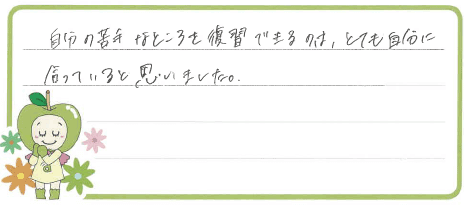 自分の苦手なところを復習できるのは、とても自分に
合っていると思いました。